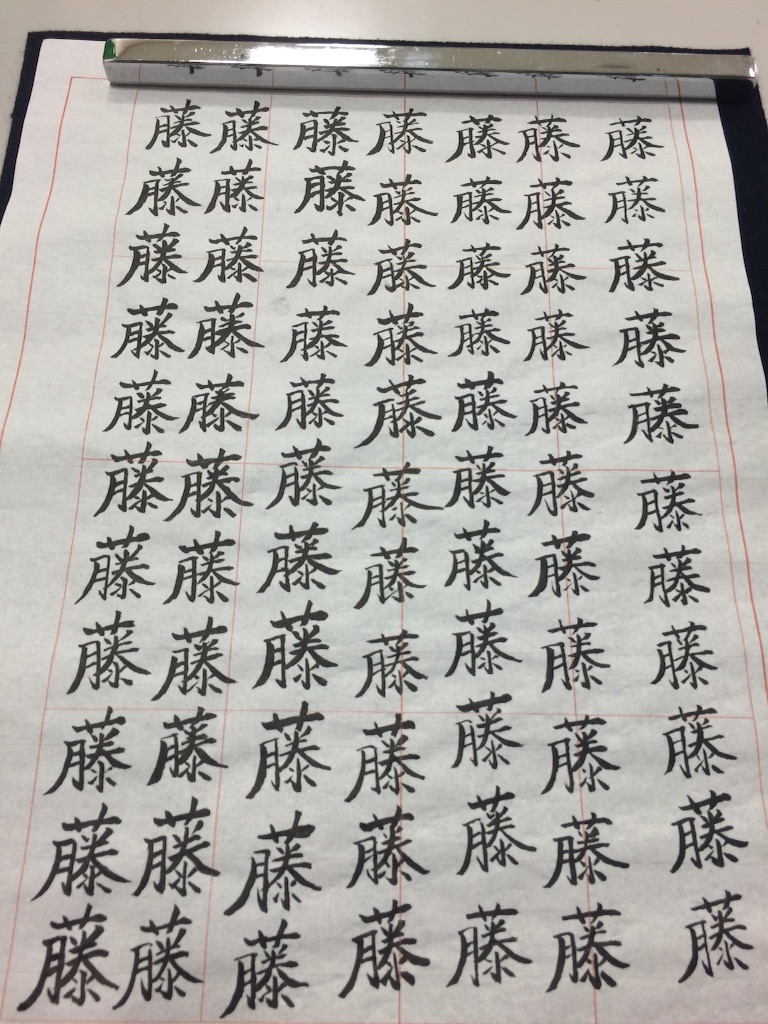 藤藤藤藤藤藤藤藤藤藤藤
藤藤藤藤藤藤藤藤藤藤藤
藤藤藤藤藤藤藤藤藤藤藤
藤藤藤藤藤藤藤藤藤藤藤
藤藤藤藤藤藤藤藤藤藤藤
藤藤藤藤藤藤藤藤藤藤藤
藤藤藤藤藤藤藤藤藤藤藤